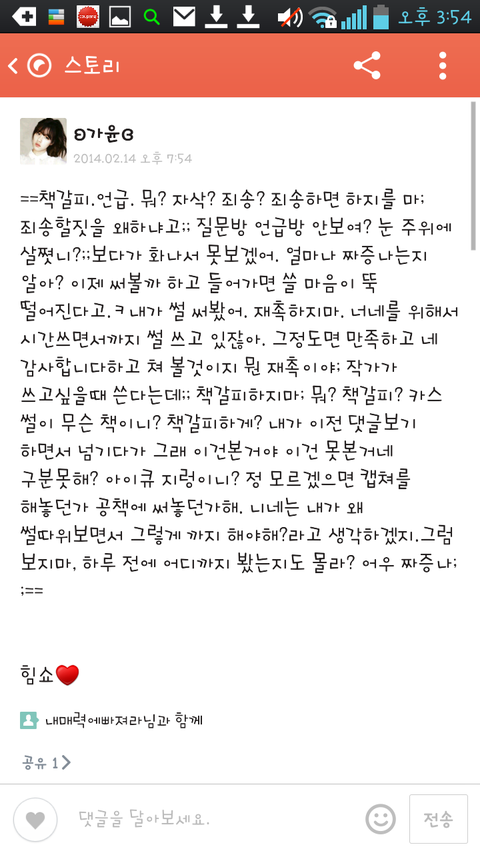 오후 3:54
스토리
ʚ가윤ɞ
2014.02.14 오후 7:54
==책갈피.언급. 뭐? 자삭? 죄송? 죄송하면 하지를 마;
죄송할짓을 왜하냐고;; 질문방 언급방 안보여? 눈 주위에
살쪘니?;;보다가 화나서 못보겠어. 얼마나 짜증나는지
알아? 이제 써볼까 하고 들어가면 쓸 마음이 뚝
떨어진다고.ㅋ내가 썰 써봤어. 재촉하지마. 너네를 위해서
시간쓰면서까지 썰 쓰고 있잖아. 그정도면 만족하고 네
감사합니다하고 쳐 볼것이지 뭔 재촉이야; 작가가
쓰고싶을때 쓴다는데;; 책갈피하지마; 뭐? 책갈피? 카스
썰이 무슨 책이니? 책갈피하게? 내가 이전 댓글보기
하면서 넘기다가 그래 이건본거야 이건 못본거네
구분못해? 아이큐 지렁이니? 정 모르겠으면 캡쳐를
해놓던가 공책에 써놓던가해. 니네는 내가 왜
썰따위보면서 그렇게 까지 해야해?라고 생각하겠지.그럼
보지마, 하루 전에 어디까지 봤는지도 몰라? 어우 짜증나;
;==
힘쇼❤
내매력에빠져라님과 함께
공유 1
댓글을 달아보세요.
전송